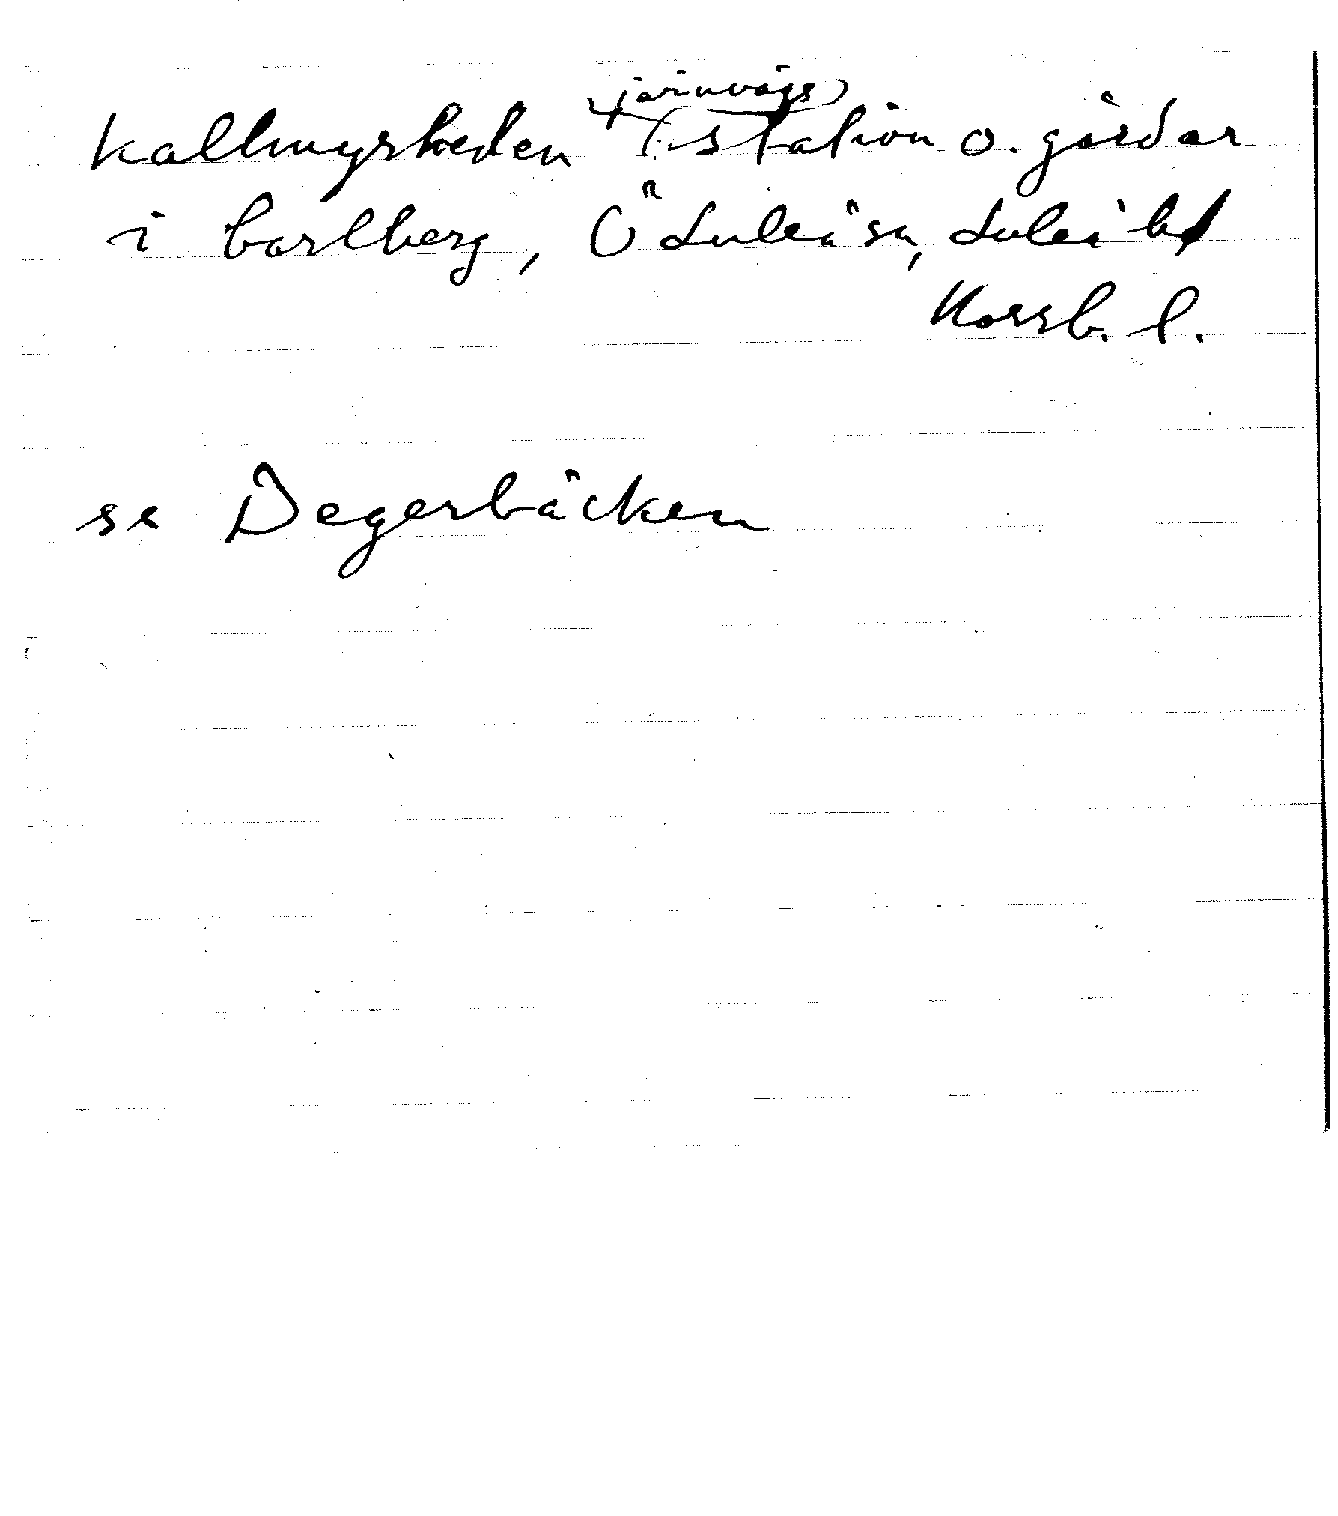 Kallmyrheden (järnvägs)station o. gårdar
i Carlberg, Ö Luleå sn, Luleå hd
Norrb. l.
se Degerbäcken